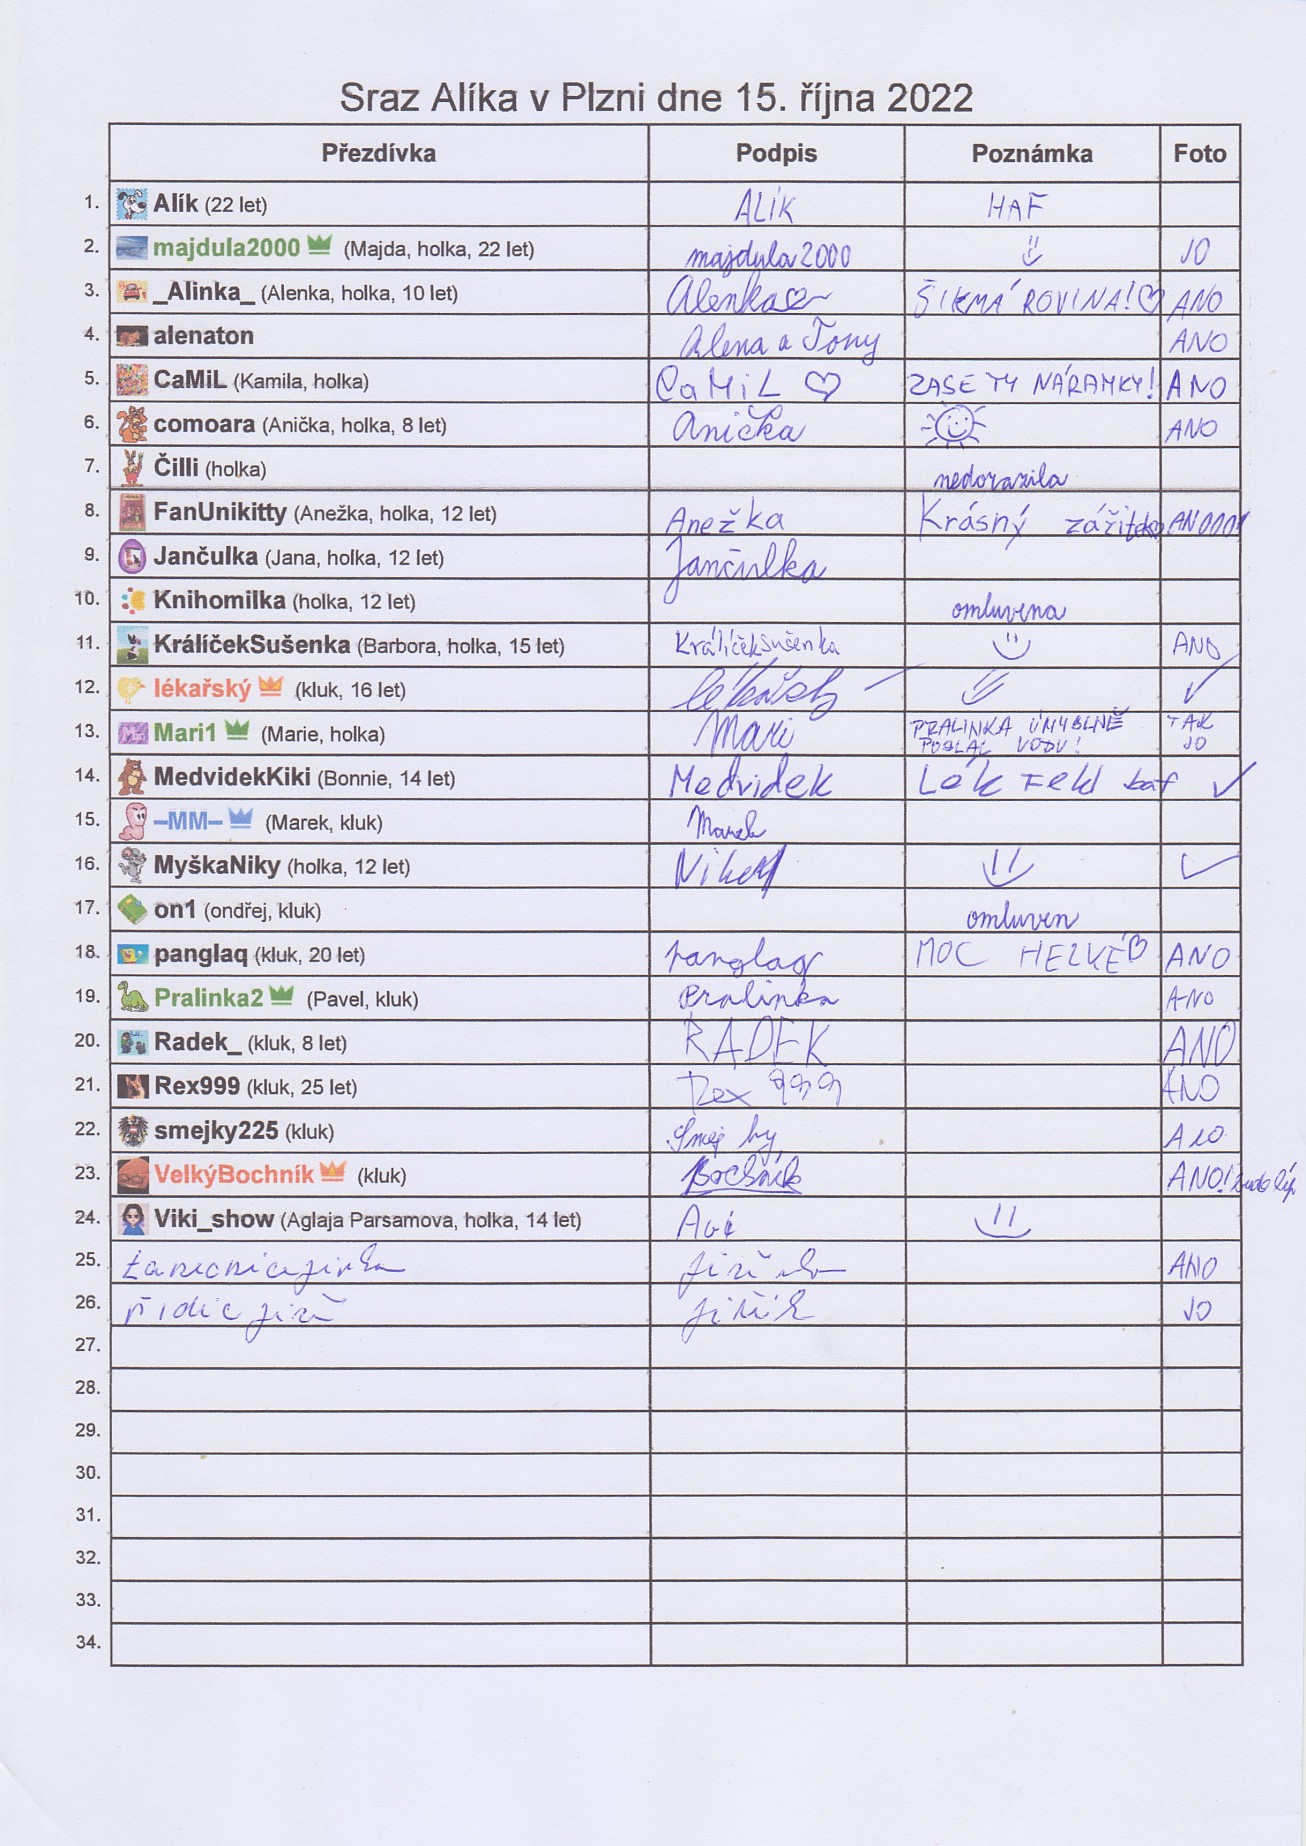 Sraz Alíka v Plzni dne 15. října 2022
Přezdívka Podpis Poznámka Foto
1. Alík (22 let) ALÍK HAF
2. majdula2000 (Majda, holka, 22 let) majdula2000 JO
3. _Alinka_ (Alenka, holka, 10 let) Alenka ŠIKMÁ ROVINA! ANO
4. alenaton Alena a Tony ANO
5. CaMiL (Kamila, holka) CaMiL ZASE TY NÁRAMKY! ANO
6. comoara (Anička, holka, 8 let) Anička ANO
7. Čilli (holka) nedorazila
8. FanUnikitty (Anežka, holka, 12 let) Anežka Krásný zážitek ANOOO!
9. Jančulka (Jana, holka, 12 let) Jančulka
10. Knihomilka (holka, 12 let) omluvena
11. KrálíčekSušenka (Barbora, holka, 15 let) KrálíčekSušenka ANO
12. lékařský (kluk, 16 let) lékařský
13. Mari1 (Marie, holka) Mari PRALINKA ÚMYSLNĚ TAK
POSLAL VODU! JO
14. MedvidekKiki (Bonnie, 14 let) Medvidek Lék řekl baf
15. –MM– (Marek, kluk) Marek
16. MyškaNiky (holka, 12 let)
17. on1 (ondřej, kluk) omluven
18. panglaq (kluk, 20 let) panglaq MOC HEZKÉ ANO
19. Pralinka2 (Pavel, kluk) Pralinka ANO
20. Radek_ (kluk, 8 let) RADEK ANO
21. Rex999 (kluk, 25 let) Rex 999 ANO
22. smejky225 (kluk) ANO
23. VelkýBochník (kluk) Bochník ANO!
24. Viki_show (Aglaja Parsamova, holka, 14 let)
25. ANO
26. řidič jiří jiřík JO
27.
28.
29.
30.
31.
32.
33.
34.